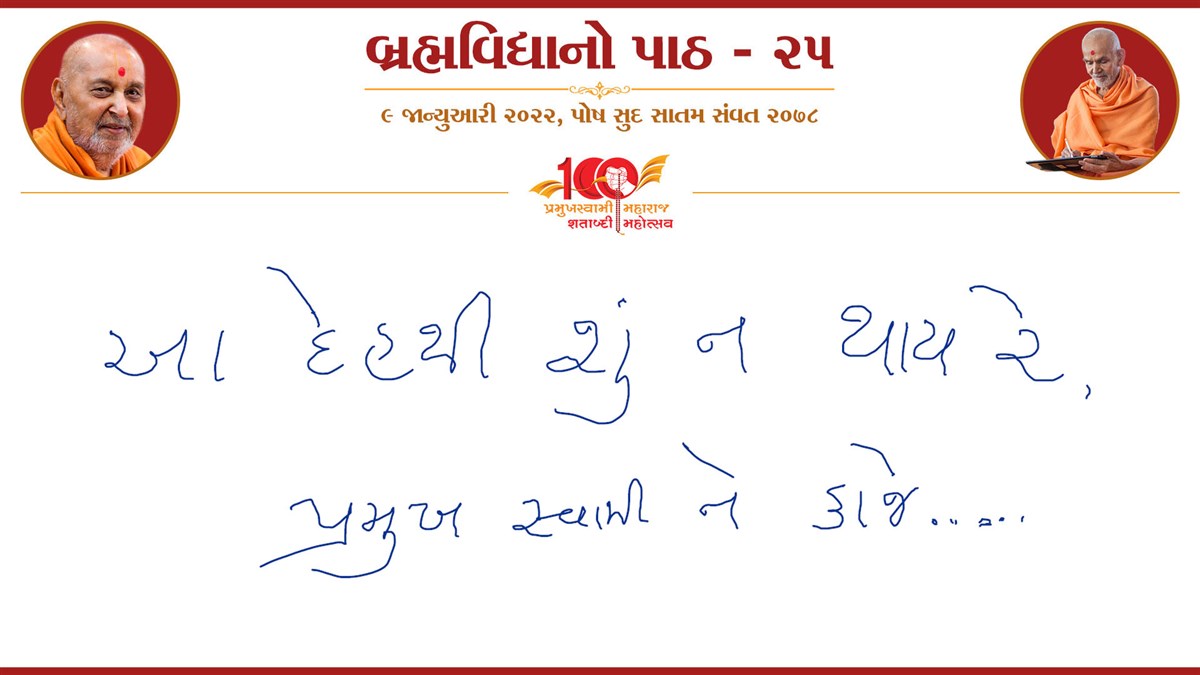 બ્રહ્મવિદ્યાનો પાઠ - ૨૫
૯ જાન્યુઆરી ૨૦૨૨, પોષ સુદ સાતમ સંવત ૨૦૭૮
100
પ્રમુખસ્વામી મહારાજ
શતાબ્દી મહોત્સવ
આ દેહથી શું ન થાય રે,
પ્રમુખ સ્વામી ને કાજે......